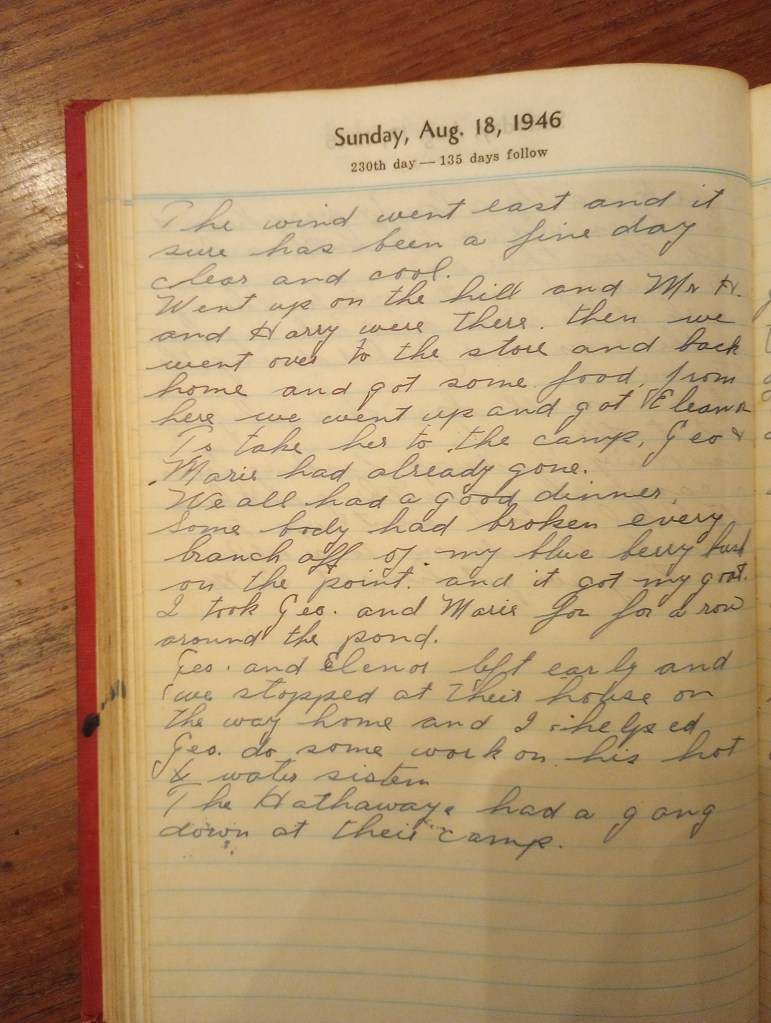 Sunday, Aug. 18, 1946
230th day — 135 days follow
The wind went east and it
sure has been a fine day
clear and cool.
Went up on the hill and Mr H.
and Harry were there. then we
went over to the store and back
home and got some food, from
here we went up and got Eleanor
To take her to the camp, Geo &
Marie had already gone.
We all had a good dinner.
Some body had broken every
branch off of my blue berry bush
on the point. and it got my goat.
I took Geo. and Marie for for a row
around the pond.
Geo. and Elenor left early and
we stopped at their house on
the way home and I helped
Geo. do some work on his hot
& water sistem
The Hathaways had a gang
down at their camp.